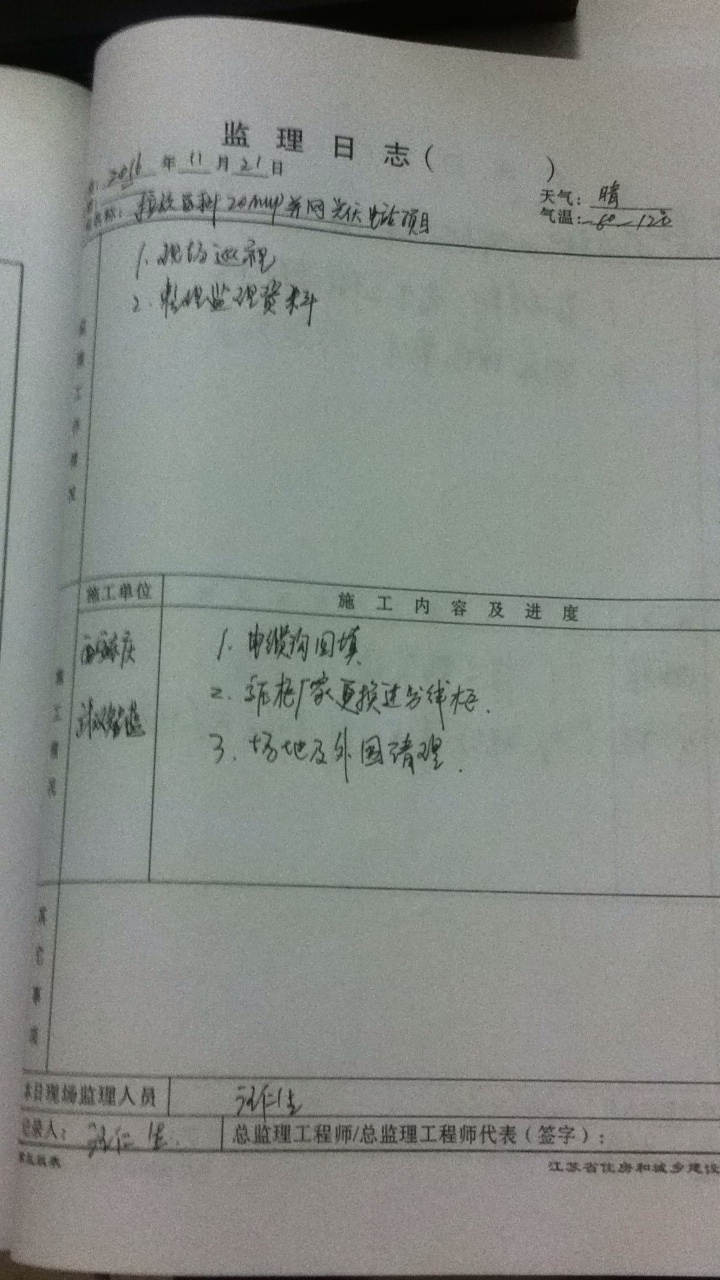 监理日志( )
2016年11月21日
天气:晴
名称: 20MWP并网光伏电站项目
气温:-6°-12°
1. 现场巡视
2. 整理监理资料
监理工作情况
施工单位
施工内容及进度
施工情况
1. 电缆沟回填
2. 厂家更换进出线柜.
3. 场地及外围清理.
其它事项
本日现场监理人员
仁生
记录人: 仁生.
总监理工程师/总监理工程师代表(签字):
江苏省住房和城乡建设